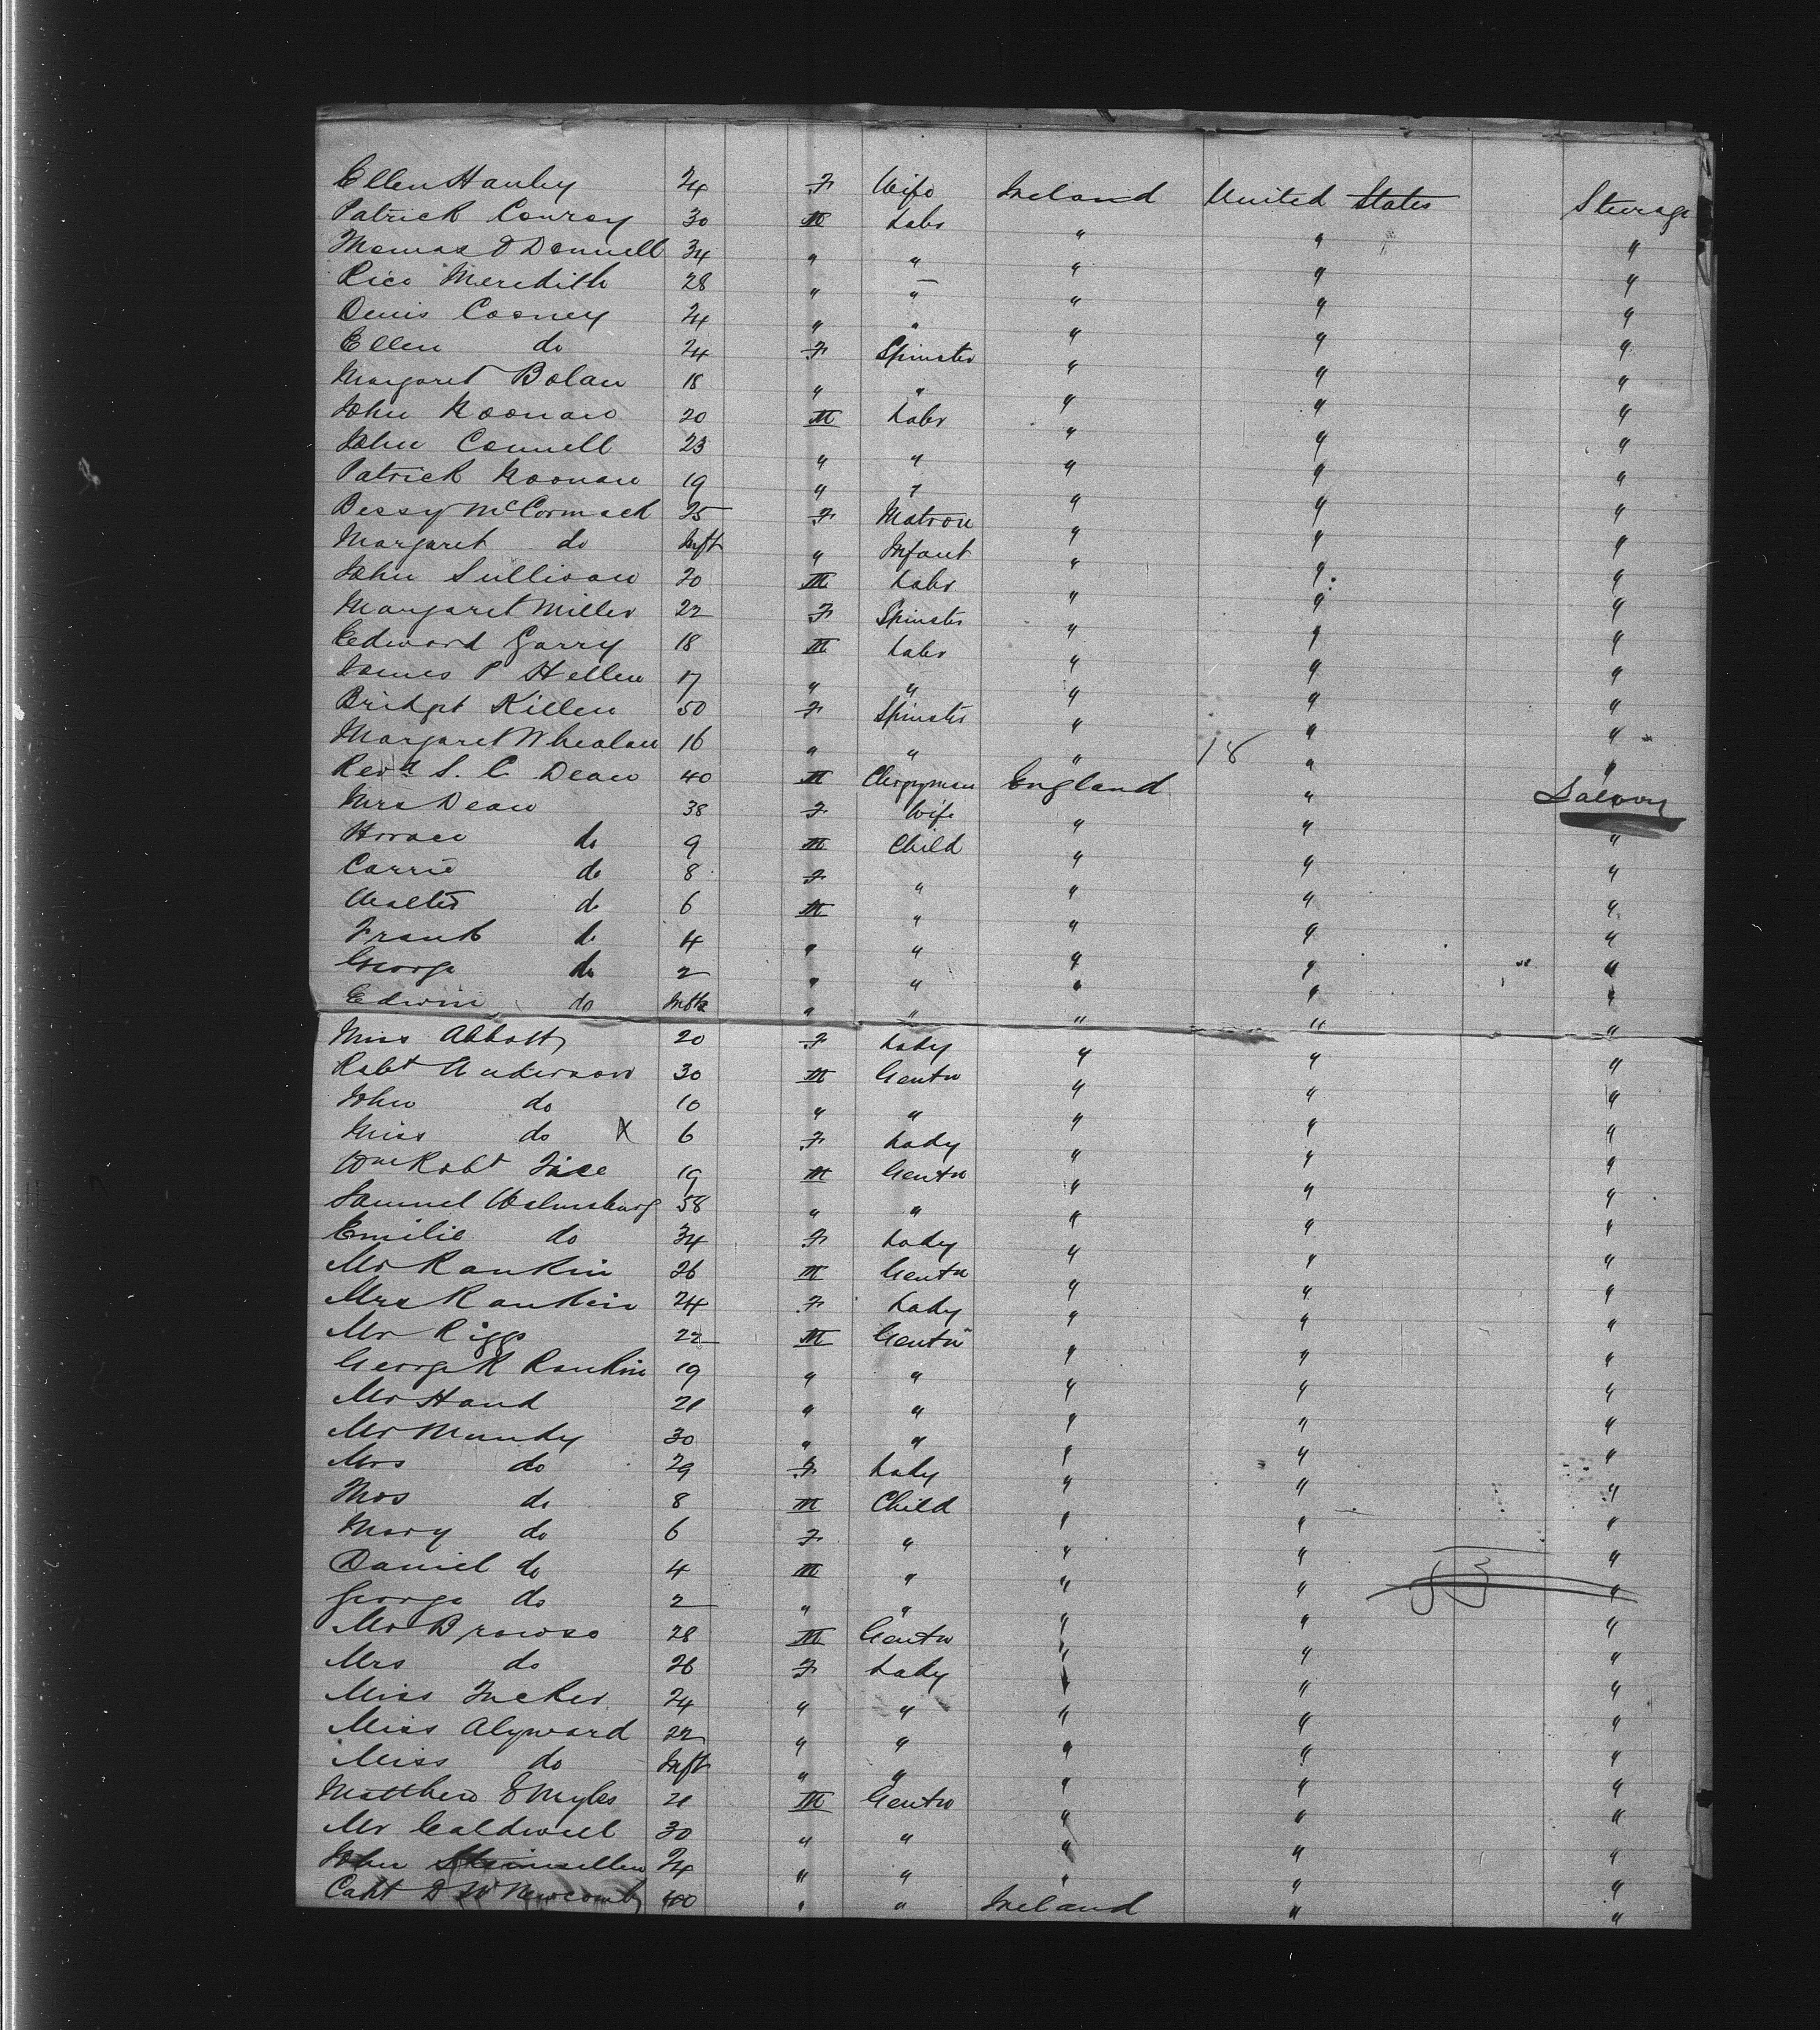 Ellen Hanley 24 F Wife Ireland United States Steerage
Patrick Conroy 30 M Labr " " "
Thomas O Donnell 34 " " " " "
Rice Meredith 28 " " " " "
Denis Cooney 24 " " " " "
Ellen do 24 F Spinster " " "
Margaret Bolan 18 " " " " "
John Noonan 20 M Labr " " "
John Connell 23 " " " " "
Patrick Noonan 19 " " " " "
Bessy McCormack 25 F Matron " " "
Margaret do Inft " Infant " " "
John Sullivan 20 M Labr " " "
Margaret Miller 22 F Spinster " " "
Edward Garry 18 M Labr " " "
James P Hellen 17 " " " " "
Bridget Killen 50 F Spinster " " "
Margaret Whealan 16 " " " 18 " "
Revd S. C Dean 40 M Clergyman England " Saloon
Mrs Dean 38 F Wife " " "
Horace do 9 M Child " " "
Carrie do 8 F " " " "
Walter do 6 M " " " "
Frank do 4 " " " " "
George do 2 " " " " "
Edwin do " " " " "
Miss Abbott 20 F Lady " " "
Robt Anderson 30 M Gentn " " "
John do 10 " " " " "
Miss do X 6 F Lady " " "
Wm Robt 19 M Gentn " " "
Samuel 58 " " " " "
Emilie do 34 F Lady " " "
Mr Rankin 26 M Gentn " " "
Mrs Rankin 24 F Lady " " "
Mr Riggs 22 M Gentn " " "
George R Rankin 19 " " " " "
Mr Hand 21 " " " " "
Mr Mundy 30 " " " " "
Mrs do 29 F Lady " " "
Thos do 8 M Child " " "
Mary do 6 F " " " "
Daniel do 4 M " " " 53 "
George do 2 " " " " "
Mr 28 M Gentn " " "
Mrs do 26 F Lady " " "
Miss Tucker 24 " " " " "
Miss Alyward 22 " " " " "
Miss do Inft " " " " "
Matthew E Myles 21 M Gentn " " "
Mr Caldwell 30 " " " " "
John 24 " " " " "
Capt D W Newcomb 40 " " Ireland " "